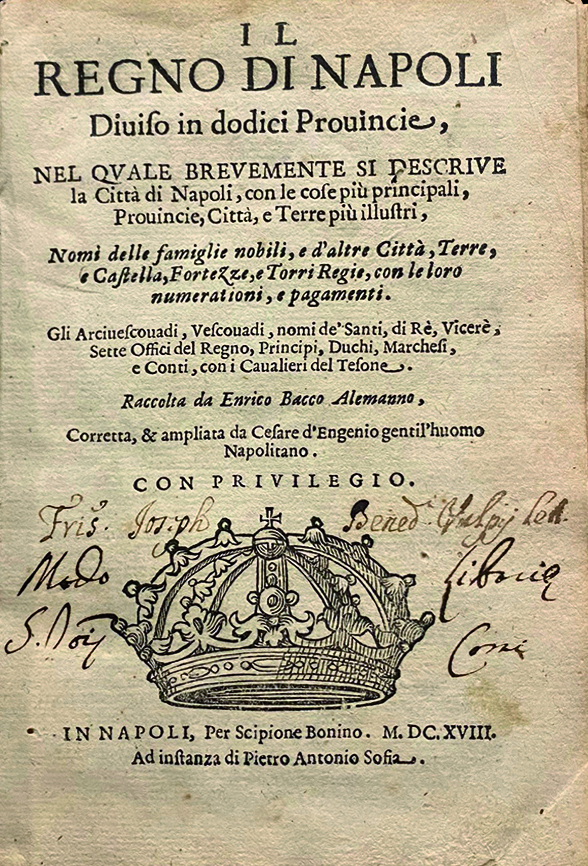 IL
REGNO DI NAPOLI
Diuiſo in dodici Prouincie,
NEL QVALE BREVEMENTE SI DESCRIVE
la Città di Napoli, con le coſe più principali,
Prouincie, Città, e Terre più illuſtri,
Nomi delle famiglie nobili, e d'altre Città, Terre,
e Caſtella, Fortezze, e Torri Regie, con le loro
numerationi, e pagamenti.
Gli Arciueſcouadi, Veſcouadi, nomi de' Santi, di Rè, Vicerè,
Sette Offici del Regno, Principi, Duchi, Marcheſi,
e Conti, con i Caualieri del Teſone.
Raccolta da Enrico Bacco Alemanno,
Corretta, & ampliata da Ceſare d'Engenio gentil'huomo
Napolitano.
CON PRIVILEGIO.
Joseph Bened.
IN NAPOLI, Per Scipione Bonino. M. DC. XVIII.
Ad inſtanza di Pietro Antonio Sofia.